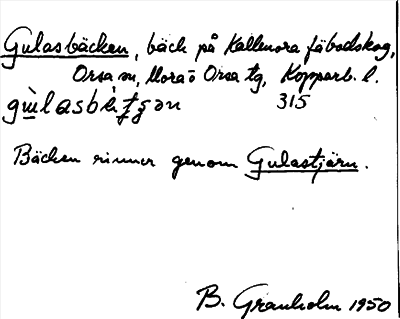 Gulasbäcken, bäck på Kallmora fäbodskog,
Orsa sn, Mora o Orsa tg, Kopparb. l.
315
Bäcken rinner genom Gulastjärn.
B. Granholm 1950